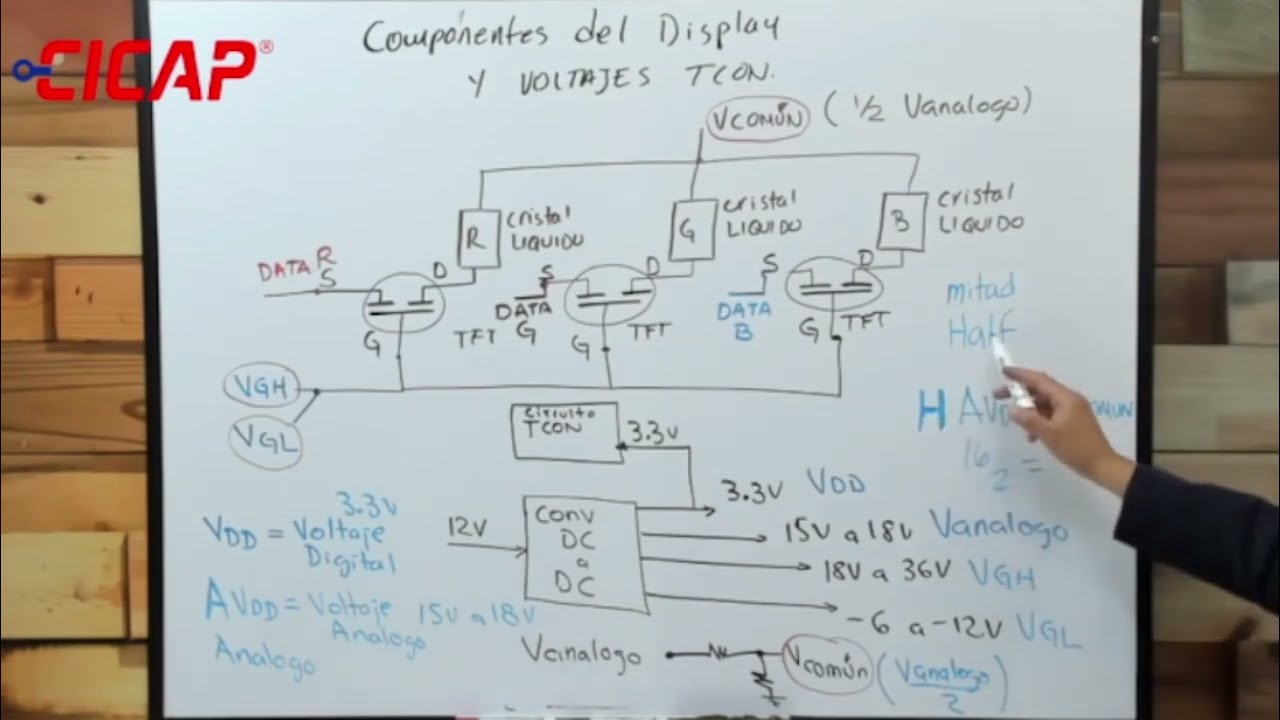 CICAP®
Componentes del Display
Y VOLTAJES TCON.
VCOMÚN (1/2 Vanalogo)
R
cristal
LIQUIDO
G
cristal
LIQUIDO
B
cristal
LIQUIDO
DATA R
S
D
G
TFT
S
D
DATA
G
G
TFT
S
D
DATA
B
G
TFT
mitad
Half
VGH
VGL
H AVD
16
2 =
circuito
TCON
3.3V
12V
Conv
DC
a
DC
3.3V VDD
15V a 18V Vanalogo
18V a 36V VGH
-6 a -12V VGL
3.3V
VDD = Voltaje
Digital
AVDD = Voltaje 15V a 18V
Analogo
Analogo
Vanalogo
Vcomún (Vanalogo/2)